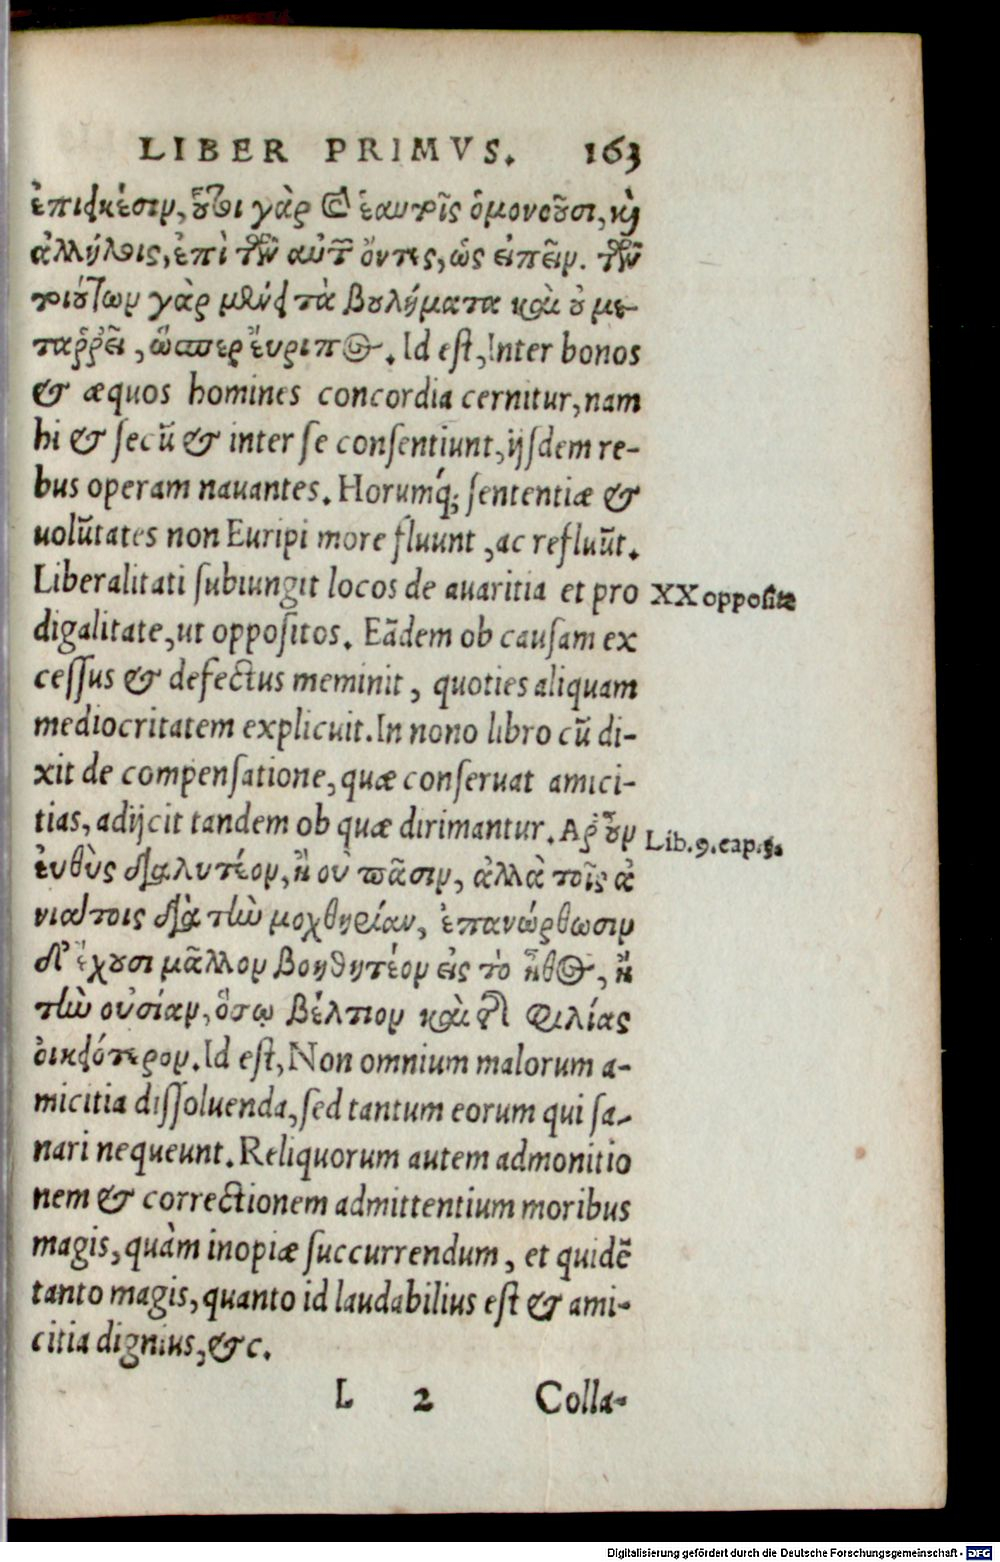 LIBER PRIMVS. 163
ἐπιεικέσιν, οὗτοι γὰρ καὶ ἑαυτοῖς ὁμονοοῦσι, καὶ
ἀλλήλοις, ἐπὶ τῶν αὐτῶν ὄντες, ὡς εἰπεῖν. τῶν
τοιούτων γὰρ μένει τὰ βουλήματα καὶ οὐ με-
ταῤῥεῖ, ὥσπερ ἔυριπος. Id eſt, Inter bonos
& æquos homines concordia cernitur, nam
hi & ſecū & inter ſe conſentiunt, ijſdem re-
bus operam nauantes. Horumq́; ſententiæ &
uolūtates non Euripi more fluunt, ac refluūt.
Liberalitati ſubiungit locos de auaritia et pro
XX oppoſitæ
digalitate, ut oppoſitos. Eādem ob cauſam ex
ceſſus & defectus meminit, quoties aliquam
mediocritatem explicuit. In nono libro cū di-
xit de compenſatione, quæ conſeruat amici-
tias, adijcit tandem ob quæ dirimantur. Αρ᾽ οὖν
Lib. 9. cap. 3.
ἐυθὺς διαλυτέον, ἢ οὐ πᾶσιν, ἀλλὰ τοῖς ἀ
νιάτοις διὰ τὴν μοχθηρίαν, ἐπανώρθωσιν
δ᾽ ἔχουσι μᾶλλον βοηθητέον εἰς τὸ ἦθος, ἢ
τὴν οὐσίαν, ὅσῳ βέλτιον καὶ τῆς φιλίας
οἰκειότερον. Id eſt, Non omnium malorum a-
micitia diſſoluenda, ſed tantum eorum qui ſa-
nari nequeunt. Reliquorum autem admonitio
nem & correctionem admittentium moribus
magis, quàm inopiæ ſuccurrendum, et quidē
tanto magis, quanto id laudabilius eſt & ami-
citia dignius, &c.
L 2 Colla-
Digitalisierung gefördert durch die Deutsche Forschungsgemeinschaft - DFG